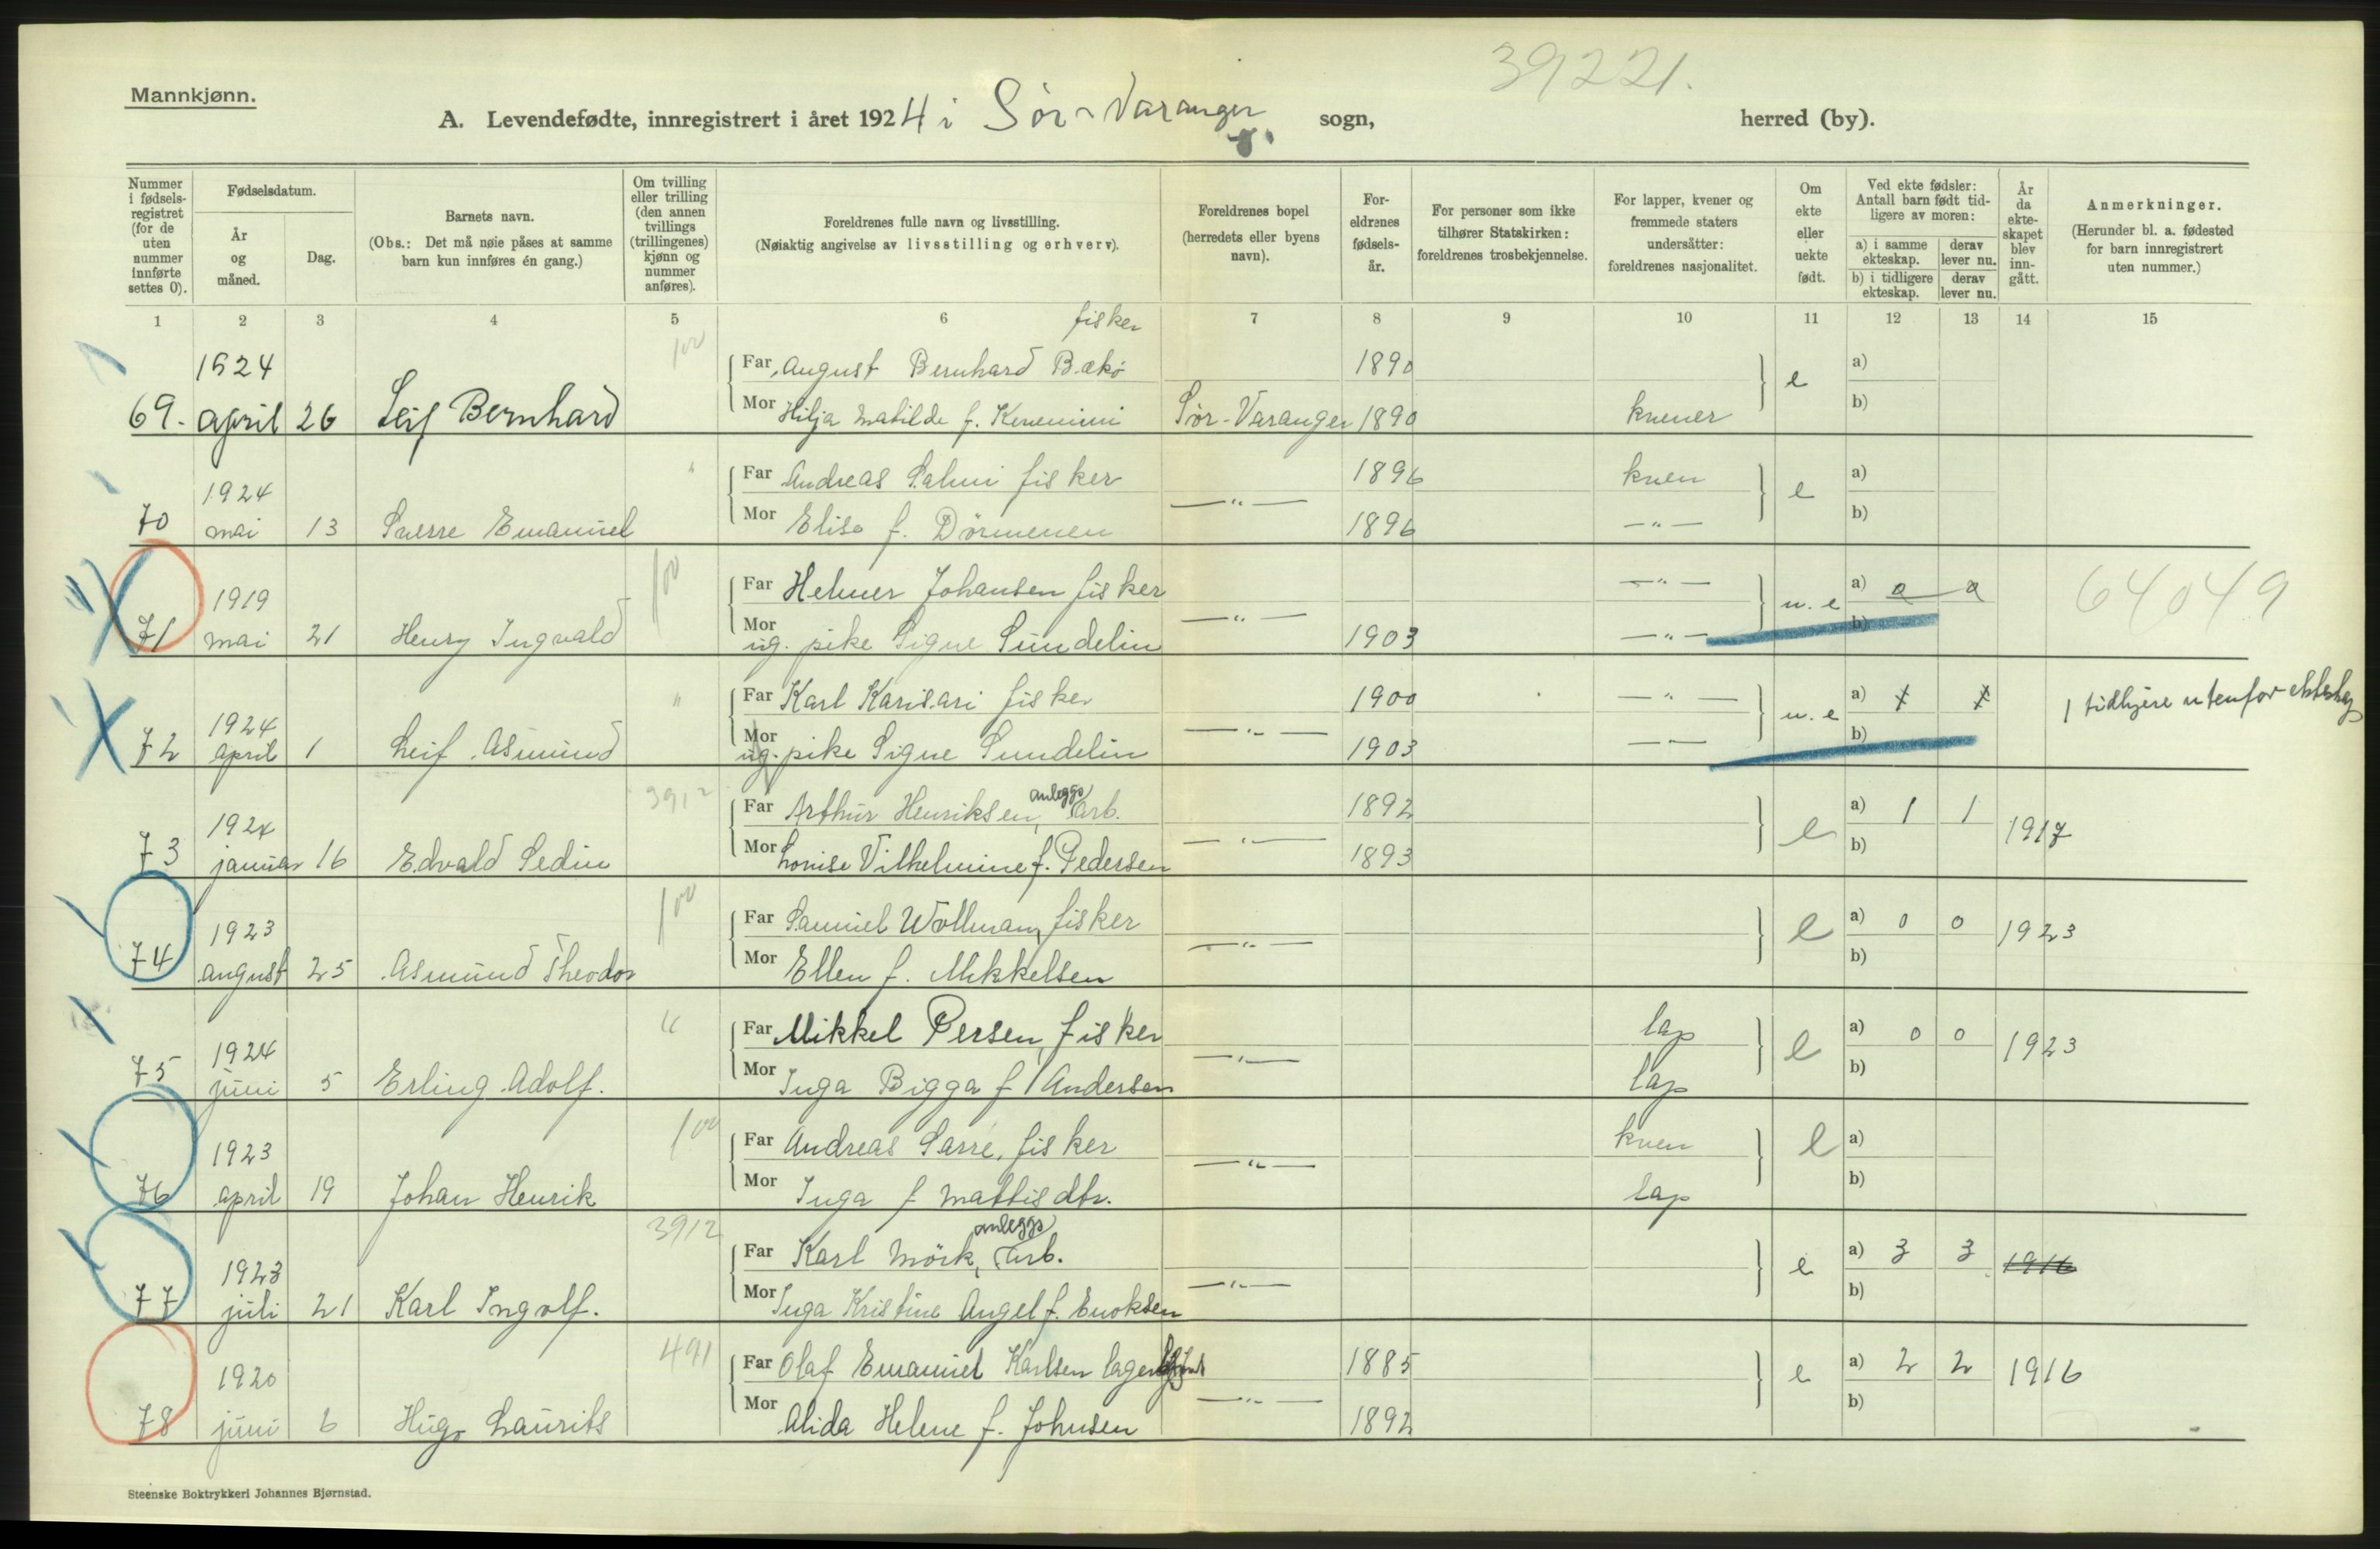 39221.
Mannkjønn.
A. Levendefødte, innregistrert i året 1924 i Sør-Varanger sogn, herred (by).
Nummer i fødsels-registret (for de uten nummer innførte settes 0).
Fødselsdatum.
År og måned.
Dag.
Barnets navn.
(Obs.: Det må nøie påses at samme barn kun innføres én gang.)
Om tvilling eller trilling (den annen tvillings (trillingenes) kjønn og nummer anføres).
Foreldrenes fulle navn og livsstilling.
(Nøiaktig angivelse av livsstilling og erhverv).
Foreldrenes bopel (herredets eller byens navn).
For-eldrenes fødsels-år.
For personer som ikke tilhører Statskirken: foreldrenes trosbekjennelse.
For lapper, kvener og fremmede staters undersåtter: foreldrenes nasjonalitet.
Om ekte eller uekte født.
Ved ekte fødsler: Antall barn født tid-ligere av moren:
a) i samme ekteskap.
derav lever nu.
b) i tidligere ekteskap.
derav lever nu.
År da ekte-skapet blev inn-gått.
Anmerkninger.
(Herunder bl. a. fødested for barn innregistrert uten nummer.)
1 2 3 4 5 6 7 8 9 10 11 12 13 14 15
fisker
1924 100 Far August Bernhard Bækø 1890 e a)
69. april 26 Leif Bernhard Mor Hilja Matilde f. Sør-Varanger 1890 kvener b)
1924 " Far Andreas Salmi fisker 1896 kven e a)
70 mai 13 Sverre Emanuel Mor Elise f. Dörmenen —"— 1896 —"— b)
1919 100 Far Helmer Johansen fisker —"— u. e a) 64049
71 mai 21 Henry Ingvald Mor ug. pike Signe Sundelin —"— 1903 —"— b)
1924 " Far Karl Karisari fisker 1900 —"— u. e a) 1 tidligere utenfor ekteskap
72 april 1 Leif Asmund Mor ug. pike Signe Sundelin —"— 1903 —"— b)
1924 3912 Far Arthur Henriksen, anleggsarb. 1892 e a) 1 1 1917
73 januar 16 Edvald Sedin Mor Lovise Vilhelmine f. Pedersen —"— 1893 b)
1923 100 Far Samuel Wollman, fisker e a) 0 0 1923
74 august 25 Asmund Theodor Mor Ellen f. Mikkelsen —"— b)
1924 " Far Mikkel Persen, fisker lap e a) 0 0 1923
75 juni 5 Erling Adolf. Mor Inga Bigga f. Andersen —"— lap b)
1923 100 Far Andreas Sarre, fisker kven e a)
76 april 19 Johan Henrik Mor Inga f Mattisdtr. —"— lap b)
1923 3912 Far Karl Mörk, anleggsarb. e a) 3 3 1916
77 juli 21 Karl Ingolf. Mor Inga Kristine Angel f. Enoksen —"— b)
1920 491 Far Olaf Emanuel Karlsen 1885 e a) 2 2 1916
78 juni 6 Hugo Laurits Mor Alida Helene f. Johnsen —"— 1892 b)
Steenske Boktrykkeri Johannes Bjørnstad.